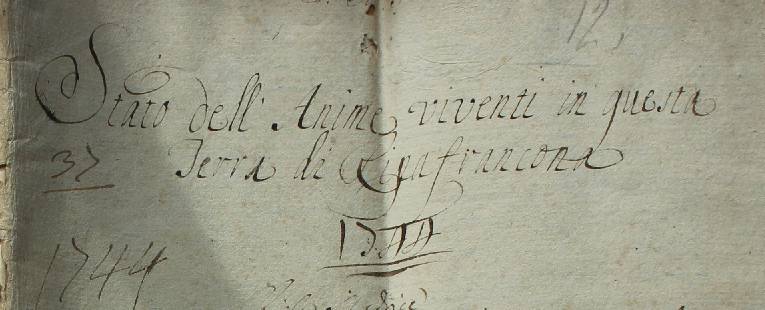 12,
Stato dell' Anime viventi in questa
37 Terra di Ripafrancona
1744
1744